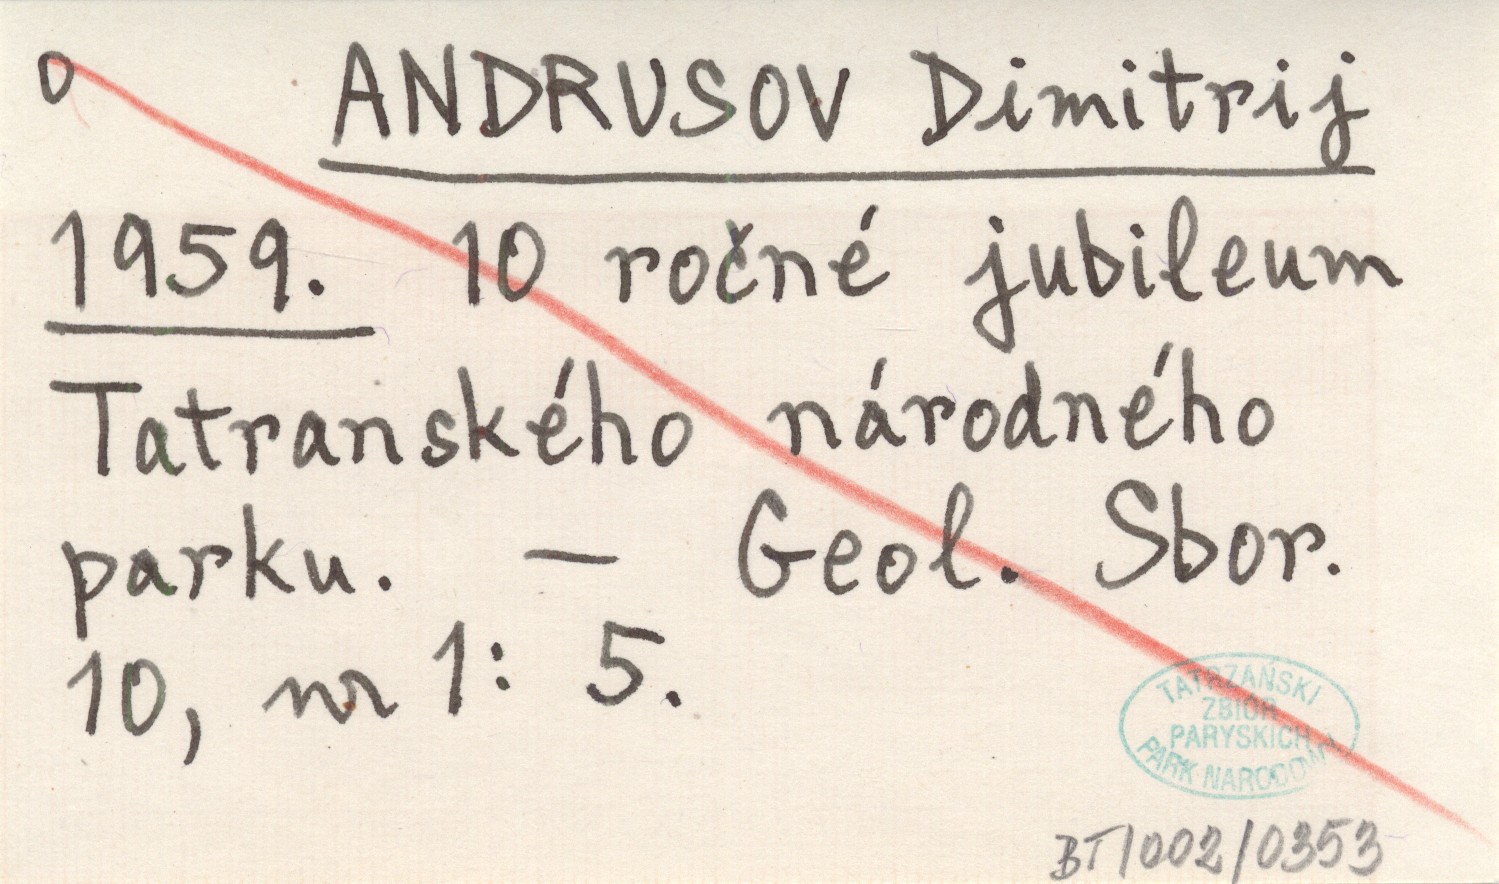 o ANDRUSOV Dimitrij
1959. 10 ročné jubileum
Tatranského národného
parku. — Geol. Sbor.
10, nr 1: 5.
TATRZAŃSKI
ZBIÓR
PARYSKICH
PARK NARODOWY
BT/002/0353